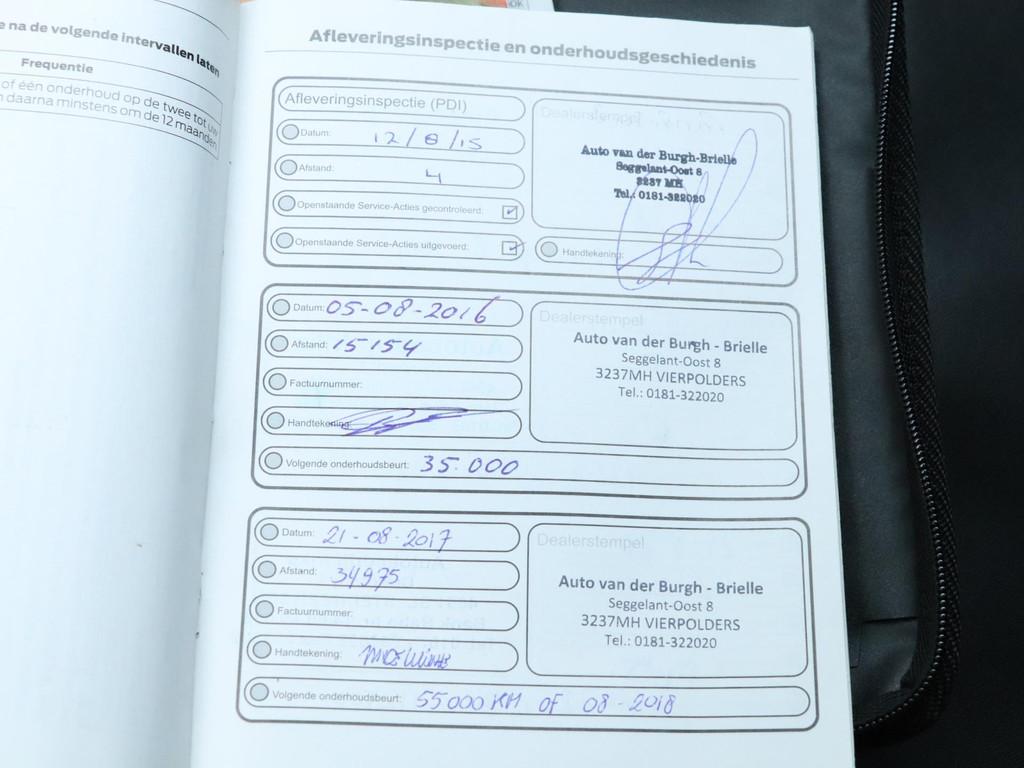 e na de volgende intervallen laten
Frequentie
of één onderhoud op de twee tot uw
daarna minstens om de 12 maanden
Afleveringsinspectie en onderhoudsgeschiedenis
Afleveringsinspectie (PDI)
Datum: 12/8/15
Afstand: 4
Openstaande Service-Acties gecontroleerd:
Openstaande Service-Acties uitgevoerd:
Dealerstempel
Auto van der Burgh-Brielle
Seggelant-Oost 8
3237 MH
Tel.: 0181-322020
Handtekening:
Datum: 05-08-2016
Afstand: 15154
Factuurnummer:
Handtekening:
Volgende onderhoudsbeurt: 35.000
Dealerstempel
Auto van der Burgh - Brielle
Seggelant-Oost 8
3237MH VIERPOLDERS
Tel.: 0181-322020
Datum: 21-08-2017
Afstand: 34975
Factuurnummer:
Handtekening:
Volgende onderhoudsbeurt: 55000 KM OF 08-2018
Dealerstempel
Auto van der Burgh - Brielle
Seggelant-Oost 8
3237MH VIERPOLDERS
Tel.: 0181-322020